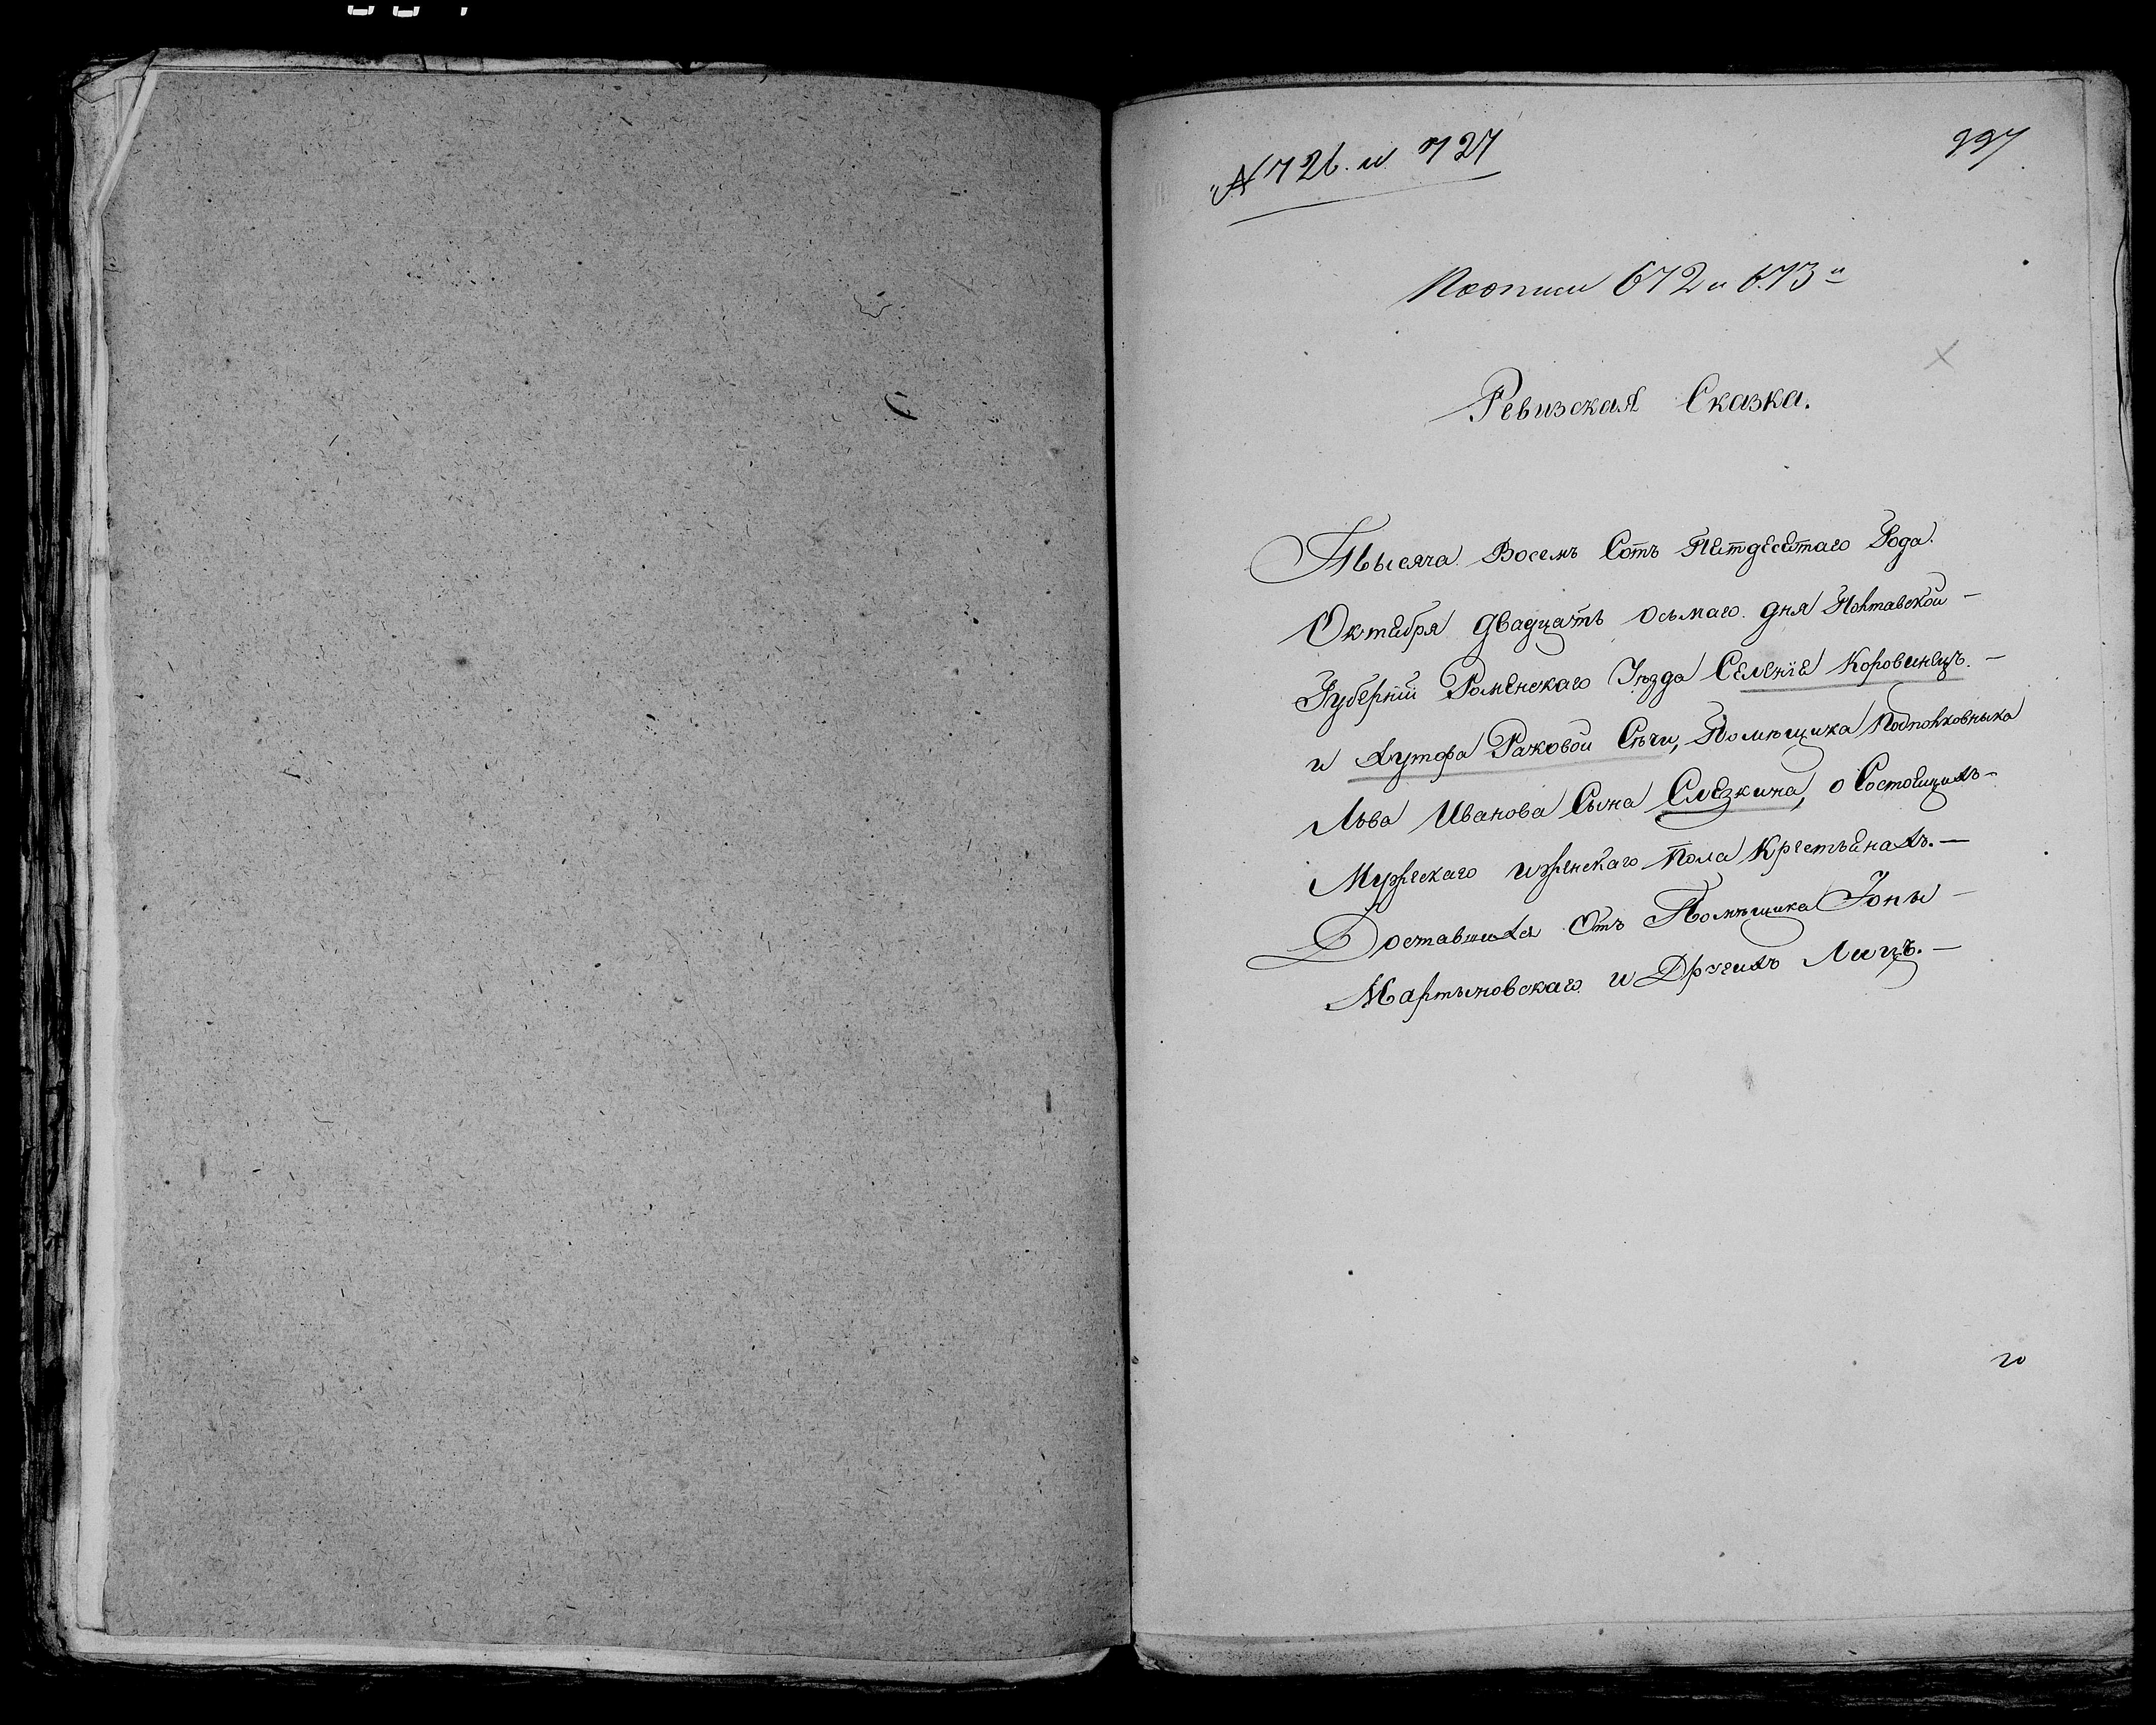 № 726. и 727
997
По описи 672 и 673 й
Ревизская Сказка.
Тысяча Восемь Сотъ Пятдесятаго Года.
Октября двадцать осьмаго дня Полтавской
Губерніи Роменскаго Уѣзда Селеніе Коровинецъ.
и Хутора Раковой Сѣчи, Помѣщика Подполковныка
Лѣва Иванова Сына Слёзкина, о Состоящихъ
Мужескаго и женскаго пола Крестьянахъ.
Доставшихся Отъ Помѣщика Іоны
Мартыновскаго и Другихъ Лицъ.